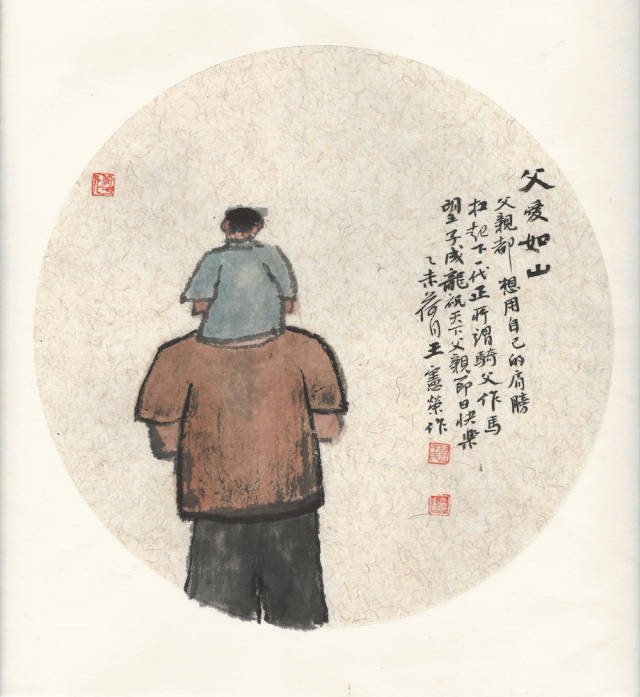 父愛如山
父親都想用自己的肩膀
扛起下一代正所謂騎父作馬
望子成龍祝天下父親節日快樂
乙未荷月王憲榮作